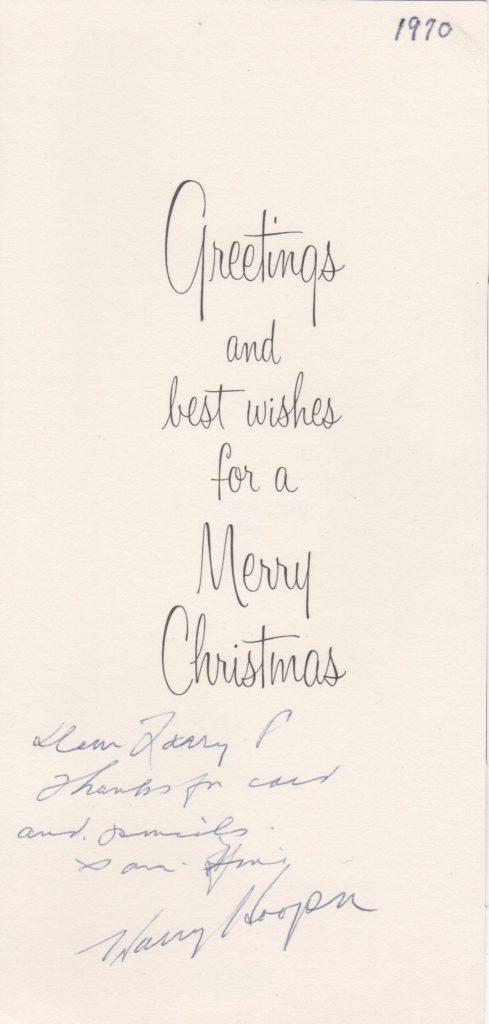 1970
Greetings
and
best wishes
for a
Merry
Christmas
Dear Larry
Thanks for card
and
Harry Hooper